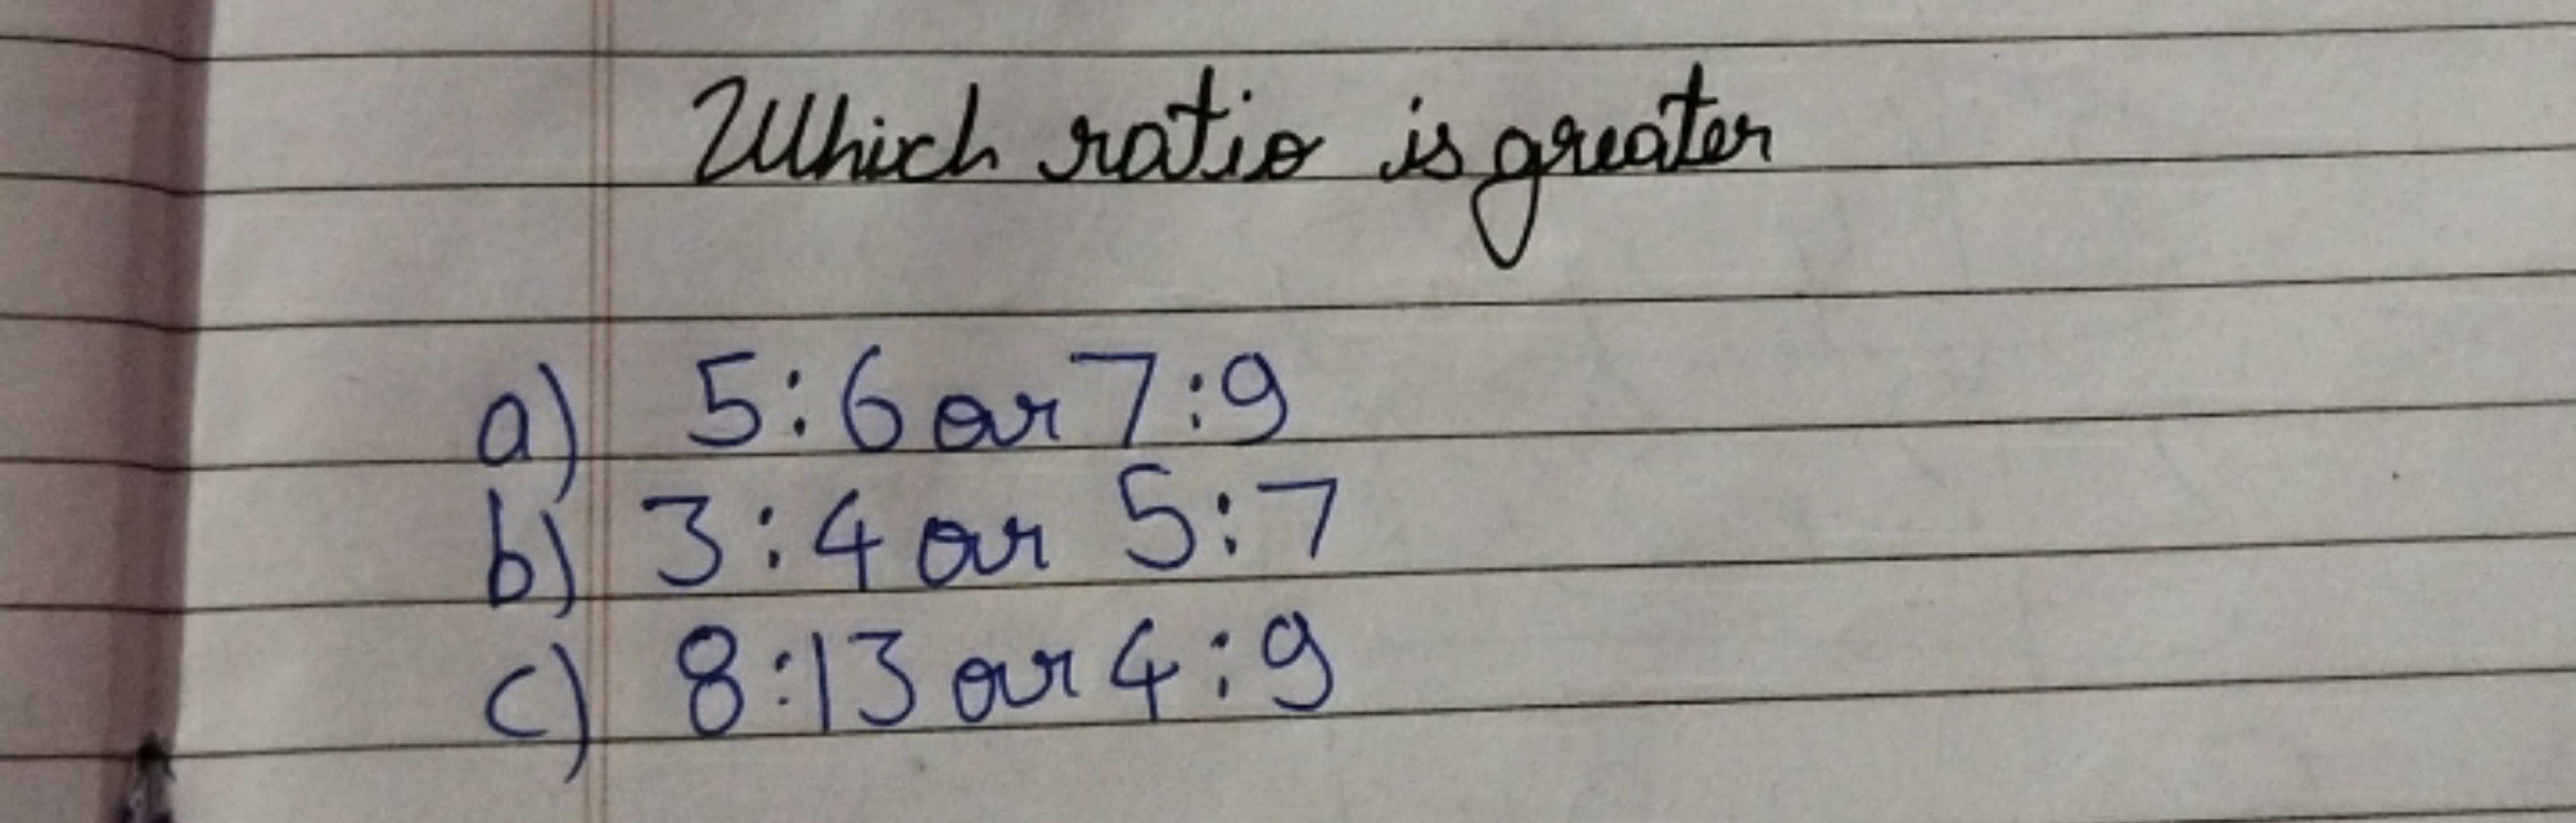 Which ratio is greater
a) 5:6 or 7:9
b) 3:4 or 5:7
c) 8:13 or 4:9